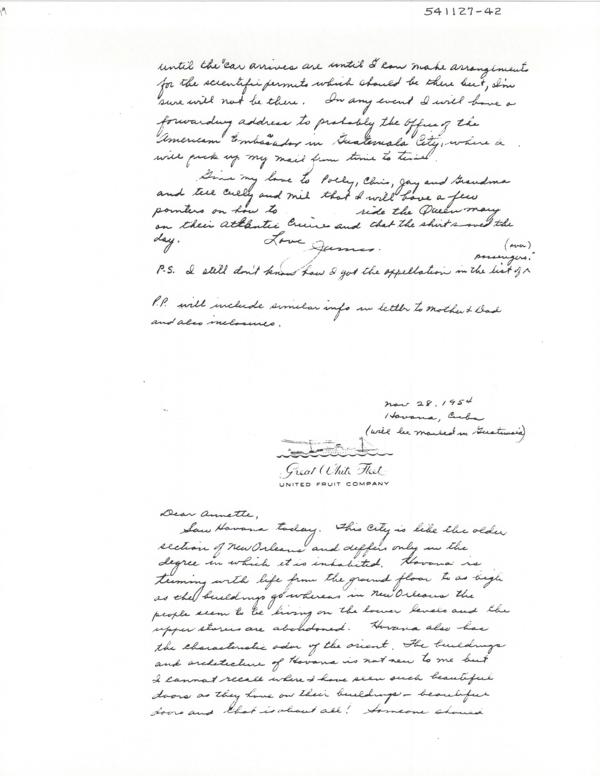 541127-42
until the car arrives are until I can make arrangements
for the scientific permits which should be there but, I'm
sure will not be there. In any event I will have a
forwarding address to probably the office of the
American Embassador in Guatemala City, where I
will pick up my mail from time to time.
Give my love to Polly, Chris, Jay and Grandma
and tell Cully and Mil that I will have a few
pointers on how to ride the Queen Mary
on their Atlantic Cruise and that the shirt saved the
day. Love
James.
(over)
passengers."
P.S. I still don't know how I got the appellation in the list of ^
P.P. will include similar info in letter to Mother & Dad
and also inclosures.
Nov 28, 1954
Havana, Cuba
(will be mailed in Guatemala)
Great White Fleet
UNITED FRUIT COMPANY
Dear Annette,
Saw Havana today. This City is like the older
section of New Orleans and differs only in the
degree in which it is inhabited. Havana is
teeming with life from the ground floor to as high
as the buildings go whereas in New Orleans the
people seem to be living on the lower levels and the
upper stories are abandoned. Havana also has
the characteristic odor of the orient. The buildings
and architecture of Havana is not new to me but
I cannot recall where I have seen such beautiful
doors as they have on their buildings - beautiful
doors and that is about all! Someone should